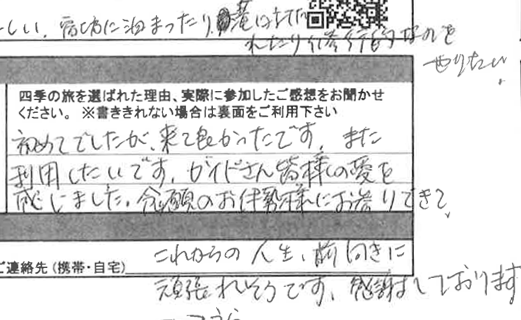 しい。宿坊に泊まったり、滝に打た
れたり修行的なのを
やりたい
四季の旅を選ばれた理由、実際に参加したご感想をお聞かせ
ください。 ※書ききれない場合は裏面をご利用下さい
初めてでしたが、来て良かったです。また
利用したいです。ガイドさん皆様の愛を
感じました。念願のお伊勢様にお参りできて、
これからの人生、前向きに
ご連絡先(携帯・自宅)
頑張れそうです。感謝しております